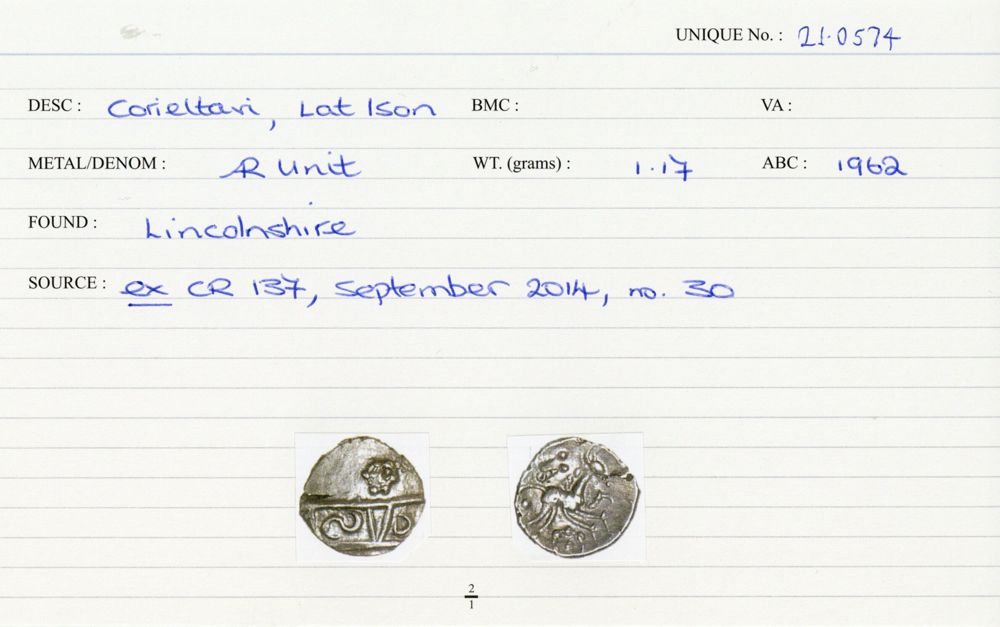 UNIQUE No. : 21.0574
DESC : Corieltavi, Lat Ison BMC : VA :
METAL/DENOM : AR Unit WT. (grams) : 1.17 ABC : 1962
FOUND : Lincolnshire
SOURCE : ex CR 137, September 2014, no. 30
2
1